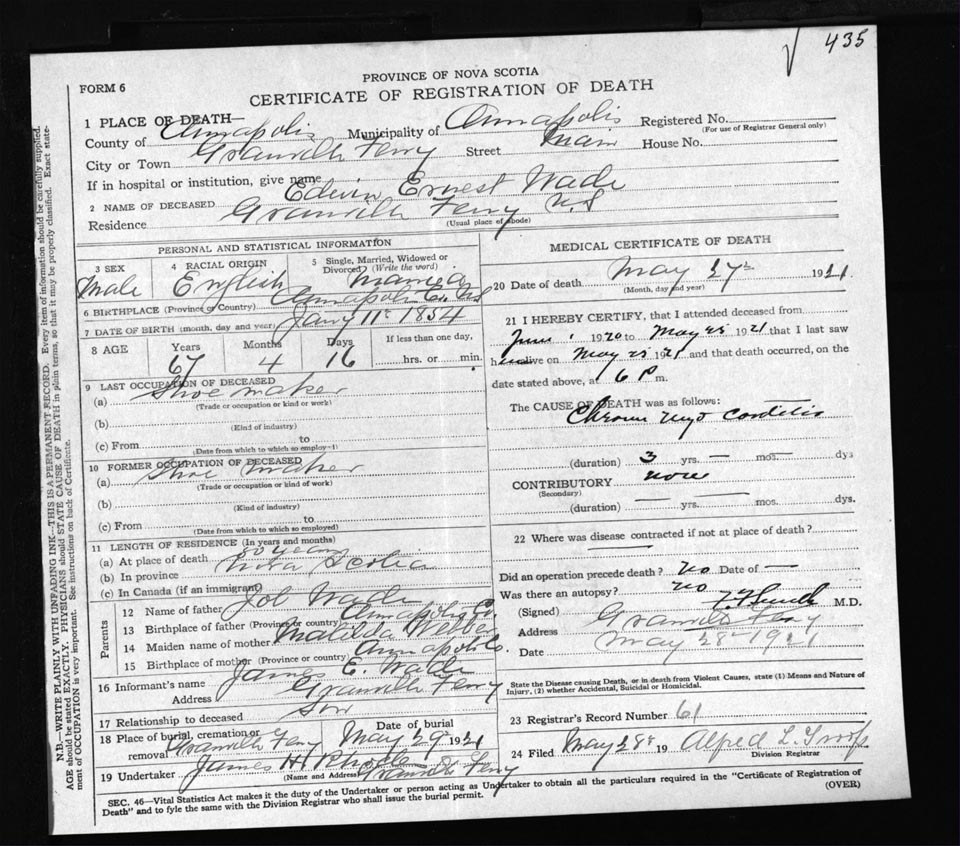 435
PROVINCE OF NOVA SCOTIA
FORM 6
CERTIFICATE OF REGISTRATION OF DEATH
1 PLACE OF DEATH—
County of Annapolis Municipality of Annapolis Registered No.
(For use of Registrar General only)
City or Town Granville Ferry Street Main House No.
If in hospital or institution, give name
2 NAME OF DECEASED Edwin Ernest Wade
Residence Granville Ferry N.S
(Usual place of abode)
PERSONAL AND STATISTICAL INFORMATION
3 SEX Male
4 RACIAL ORIGIN English
5 Single, Married, Widowed or Divorced (Write the word) Married
6 BIRTHPLACE (Province or Country) Annapolis Co. NS
7 DATE OF BIRTH (month, day and year) Jany 11th 1854
8 AGE Years 67 Months 4 Days 16 If less than one day, hrs. or min.
9 LAST OCCUPATION OF DECEASED
(a) Shoe maker
(Trade or occupation or kind or work)
(b)
(Kind of industry)
(c) From to
(Date from which to which so employ—)
10 FORMER OCCUPATION OF DECEASED
(a) Shoe maker
(Trade or occupation or kind of work)
(b)
(Kind of industry)
(c) From to
(Date from which to which so employed)
11 LENGTH OF RESIDENCE (In years and months)
(a) At place of death 50 years
(b) In province Nova Scotia
(c) In Canada (if an immigrant)
Parents
12 Name of father Job Wade
13 Birthplace of father (Province or country) Annapolis Co.
14 Maiden name of mother Matilda
15 Birthplace of mother (Province or country) Annapolis Co.
16 Informant's name James E. Wade
Address Granville Ferry
17 Relationship to deceased Son
18 Place of burial, cremation or removal Granville Ferry Date of burial May 29 1921
19 Undertaker James H
(Name and Address) Granville Ferry
MEDICAL CERTIFICATE OF DEATH
20 Date of death May 27th 1921
(Month, day and year)
21 I HEREBY CERTIFY, that I attended deceased from
June 1 1920 to May 25 1921 that I last saw
h alive on May 25 1921 and that death occurred, on the
date stated above, at 6 P m.
The CAUSE OF DEATH was as follows:
Chronic Myo Carditis
(duration) 3 yrs. — mos. — dys
CONTRIBUTORY none
(Secondary)
(duration) — yrs. — mos. dys.
22 Where was disease contracted if not at place of death?
Did an operation precede death? No Date of —
Was there an autopsy? No
(Signed) M.D.
Address Granville Ferry
Date May 28th 1921
State the Disease causing Death, or in death from Violent Causes, state (1) Means and Nature of
Injury, (2) whether Accidental, Suicidal or Homicidal.
23 Registrar's Record Number 61
24 Filed May 28th 19 Alfred L.
Division Registrar
SEC. 46—Vital Statistics Act makes it the duty of the Undertaker or person acting as Undertaker to obtain all the particulars required in the "Certificate of Registration of
Death" and to fyle the same with the Division Registrar who shall issue the burial permit. (OVER)
N.B.—WRITE PLAINLY WITH UNFADING INK—THIS IS A PERMANENT RECORD. Every item of information should be carefully supplied.
AGE should be stated EXACTLY. PHYSICIANS should STATE CAUSE OF DEATH in plain terms, so that it may be properly classified. Exact state-
ment of OCCUPATION is very important. See instructions on back of Certificate.